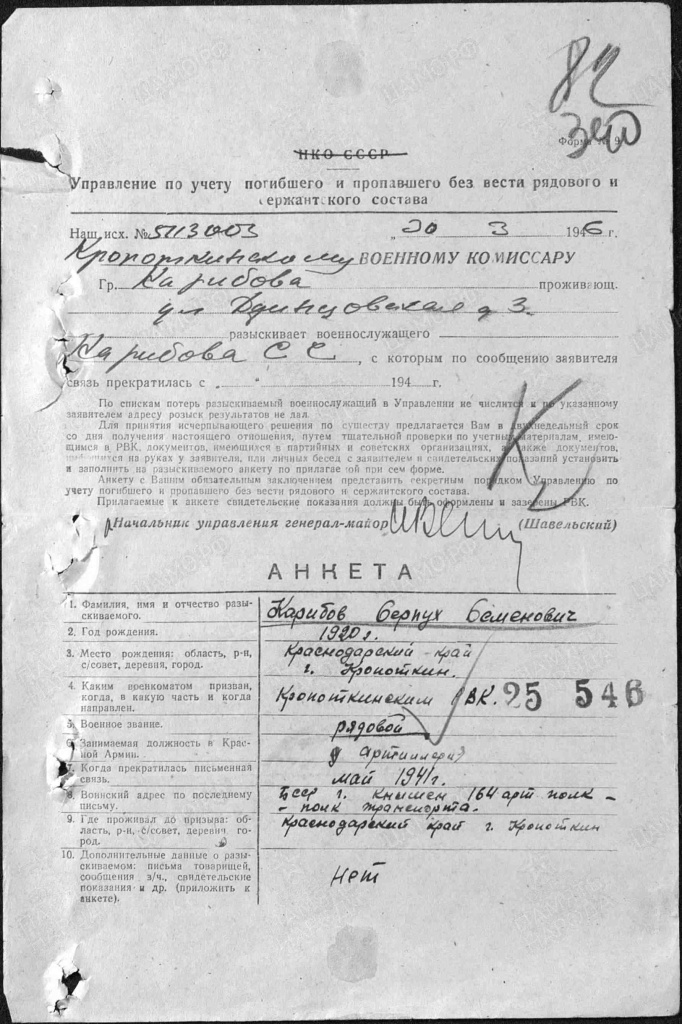 82
340
Форма № 9
НКО СССР
Управление по учету погибшего и пропавшего без вести рядового и
сержантского состава
Наш. исх. № „20 3 1946 г.
Кропоткинскому ВОЕННОМУ КОМИССАРУ
Гр. Карибова проживающ.
ул Одинцовская д 3.
разыскивает военнослужащего
Карибова С С, с которым по сообщению заявителя
связь прекратилась с „ “ 194 г.
По спискам потерь разыскиваемый военнослужащий в Управлении не числится и по указанному
заявителем адресу розыск результатов не дал.
Для принятия исчерпывающего решения по существу предлагается Вам в двухнедельный срок
со дня получения настоящего отношения, путем тщательной проверки по учетным материалам, имею-
щимся в РВК, документов, имеющихся в партийных и советских организациях, а также документов,
имеющихся на руках у заявителя, или личных бесед с заявителем и свидетельских показаний установить
и заполнить на разыскиваемого анкету по прилагаемой при сем форме.
Анкету с Вашим обязательным заключением представить секретным порядком Управлению по
учету погибшего и пропавшего без вести рядового и сержантского состава.
Прилагаемые к анкете свидетельские показания должны быть оформлены и заверены РВК.
Начальник управления генерал-майор (Шавельский)
АНКЕТА
1. Фамилия, имя и отчество разы-
скиваемого.
Карибов Серпух Семенович
2. Год рождения.
1920 г.
3. Место рождения: область, р-н,
с/совет, деревня, город.
Краснодарский край
г. Кропоткин.
4. Каким военкоматом призван,
когда, в какую часть и когда
направлен.
Кропоткинским РВК. 25 546
5. Военное звание.
рядовой
6. Занимаемая должность в Крас-
ной Армии.
артиллерия
7. Когда прекратилась письменная
связь.
май 1941 г.
8. Воинский адрес по последнему
письму.
БССР г. 164 арт полк -
- полк транспорта.
9. Где проживал до призыва: об-
ласть, р-н, с/совет, деревня, го-
род.
Краснодарский край г. Кропоткин
10. Дополнительные данные о разы-
скиваемом: письма товарищей,
сообщения з/ч., свидетельские
показания и др. (приложить к
анкете).
Нет